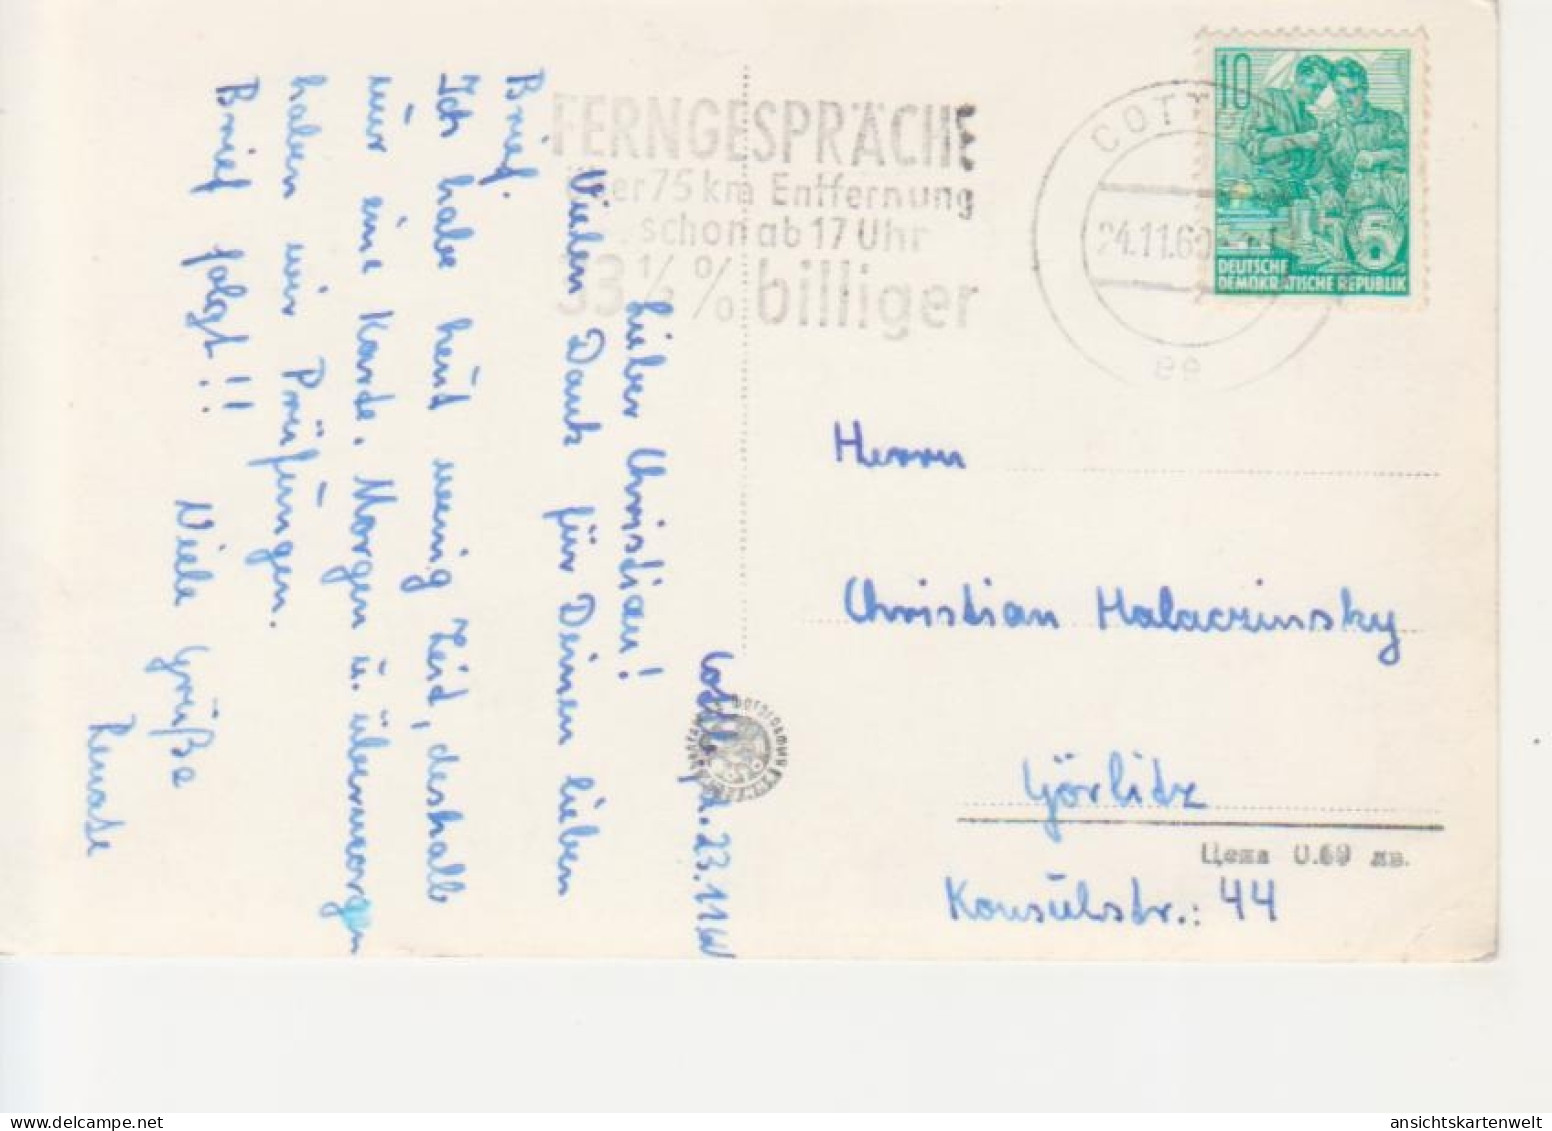 Cottb., d. 23.11.60
Lieber Christian!
Vielen Dank für Deinen lieben
Brief.
Ich habe heut wenig Zeit, deshalb
nur eine Karte. Morgen u. übermorgen
haben wir Prüfungen.
Brief folgt!!
Viele Grüße
Renate
FERNGESPRÄCHE
über 75 km Entfernung
schon ab 17 Uhr
33 1/3 % billiger
COTT
24.11.60
10
5
DEUTSCHE
DEMOKRATISCHE REPUBLIK
Herrn
Christian Halaczinsky
Görlitz
Цена 0.69 лв.
Konsulstr.: 44
ansichtskartenwelt